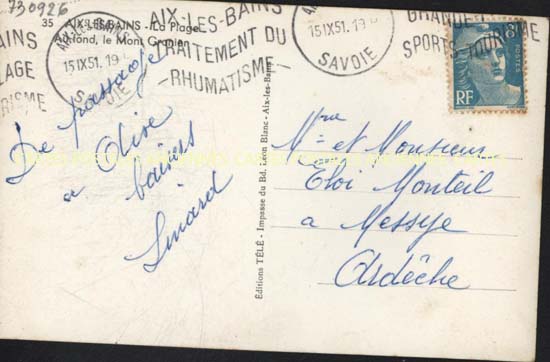 730926
35 AIX-LES-BAINS - La Plage
Au fond, le Mont Granier
AIX-LES-BAINS
15 IX 51. 19
SAVOIE
AIX-LES-BAINS
TRAITEMENT DU
RHUMATISME
15 IX 51. 19
SAVOIE
GRANDE
SPORTS TOURISME
AINS
LAGE
RISME
8F
POSTES
RF
De passage
a
baisers
Editions TÉLÉ - Impasse du Bd. Léon Blanc - Aix-les-Bains
Mme et Monsieur
Eloi Monteil
a Messye
Ardèche